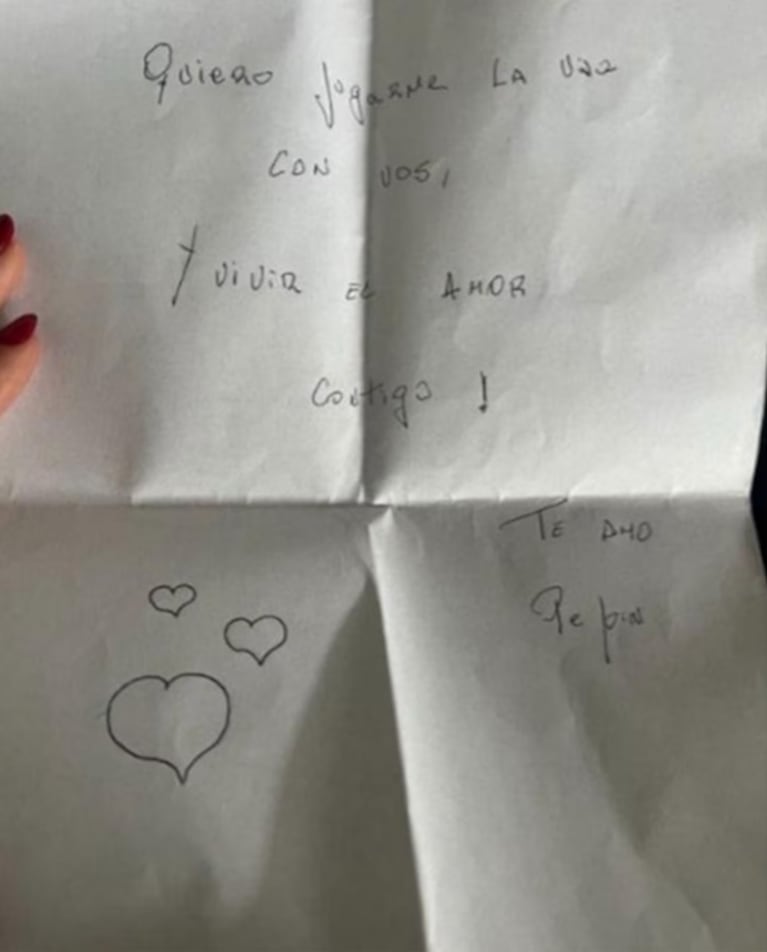 Quiero jugarme LA vida
CON VOS,
Y ViViR EL AMOR
Contigo !
TE AMO
Pepin